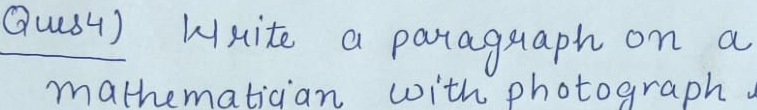 Ques4) Write a paragraph on a
mathematician with photograph.